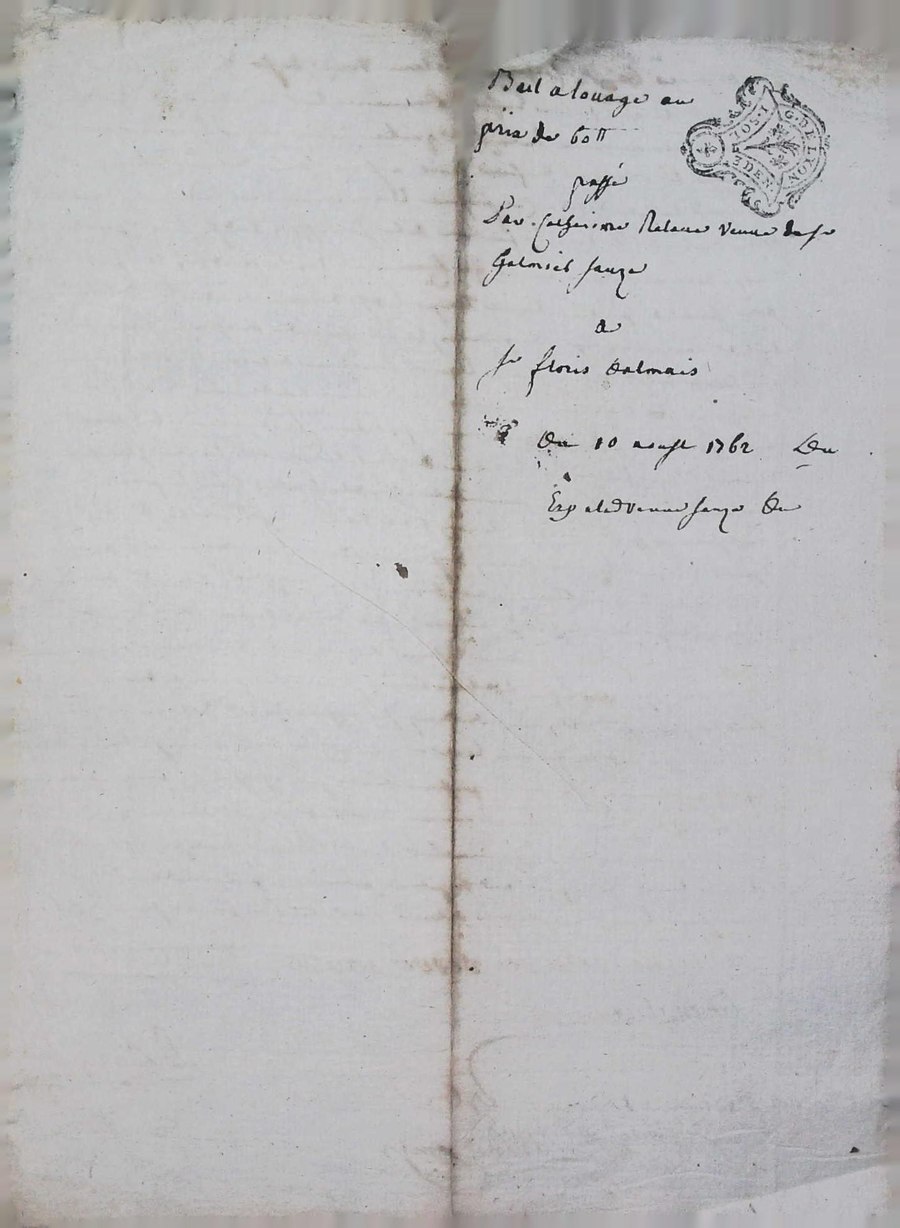 Bail a louage au
prix de 60 ₶
passé
Par Catherine veuve de Sr
Gabriel Sauze
a
Sr floris Dalmais
Du 10 aoust 1762 Du
Exp a lad veuve Sauze
G. DE LYON